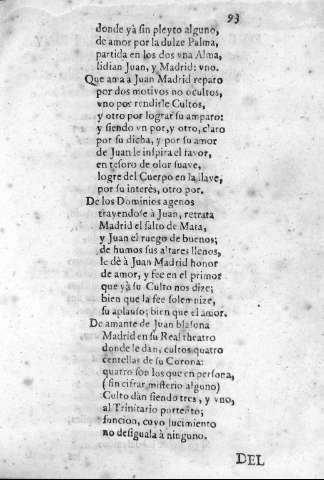 93
donde yà ſin pleyto alguno,
de amor por la dulze Palma,
partida en los dos vna Alma,
lidian Juan, y Madrid: vno.
Que ama a Juan Madrid reparo
por dos motivos no ocultos,
vno por rendirle Cultos,
y otro por lograr ſu amparo:
y ſiendo vn por, y otro, claro
por ſu dicha, y por ſu amor
de Juan le inſpira el favor,
en teſoro de olor ſuave,
logre del Cuerpo en la llave,
por ſu interès, otro por.
De los Dominios agenos
trayendoſe à Juan, retrata
Madrid el ſalto de Mata,
y Juan el ruego de buenos;
de humos ſus altares llenos,
le dè à Juan Madrid honor
de amor, y fee en el primor
que yà ſu Culto nos dize;
bien que la fee ſolemnize,
ſu aplauſo; bien que el amor.
De amante de Juan blaſona
Madrid en ſu Real theatro
donde le dan, cultos quatro
centellas de ſu Corona:
quatro ſon los que en perſona,
( ſin cifrar miſterio alguno)
Culto dàn ſiendo tres, y vno,
al Trinitario portento;
funcion, cuyo lucimiento
no deſiguala à ninguno.
DEL